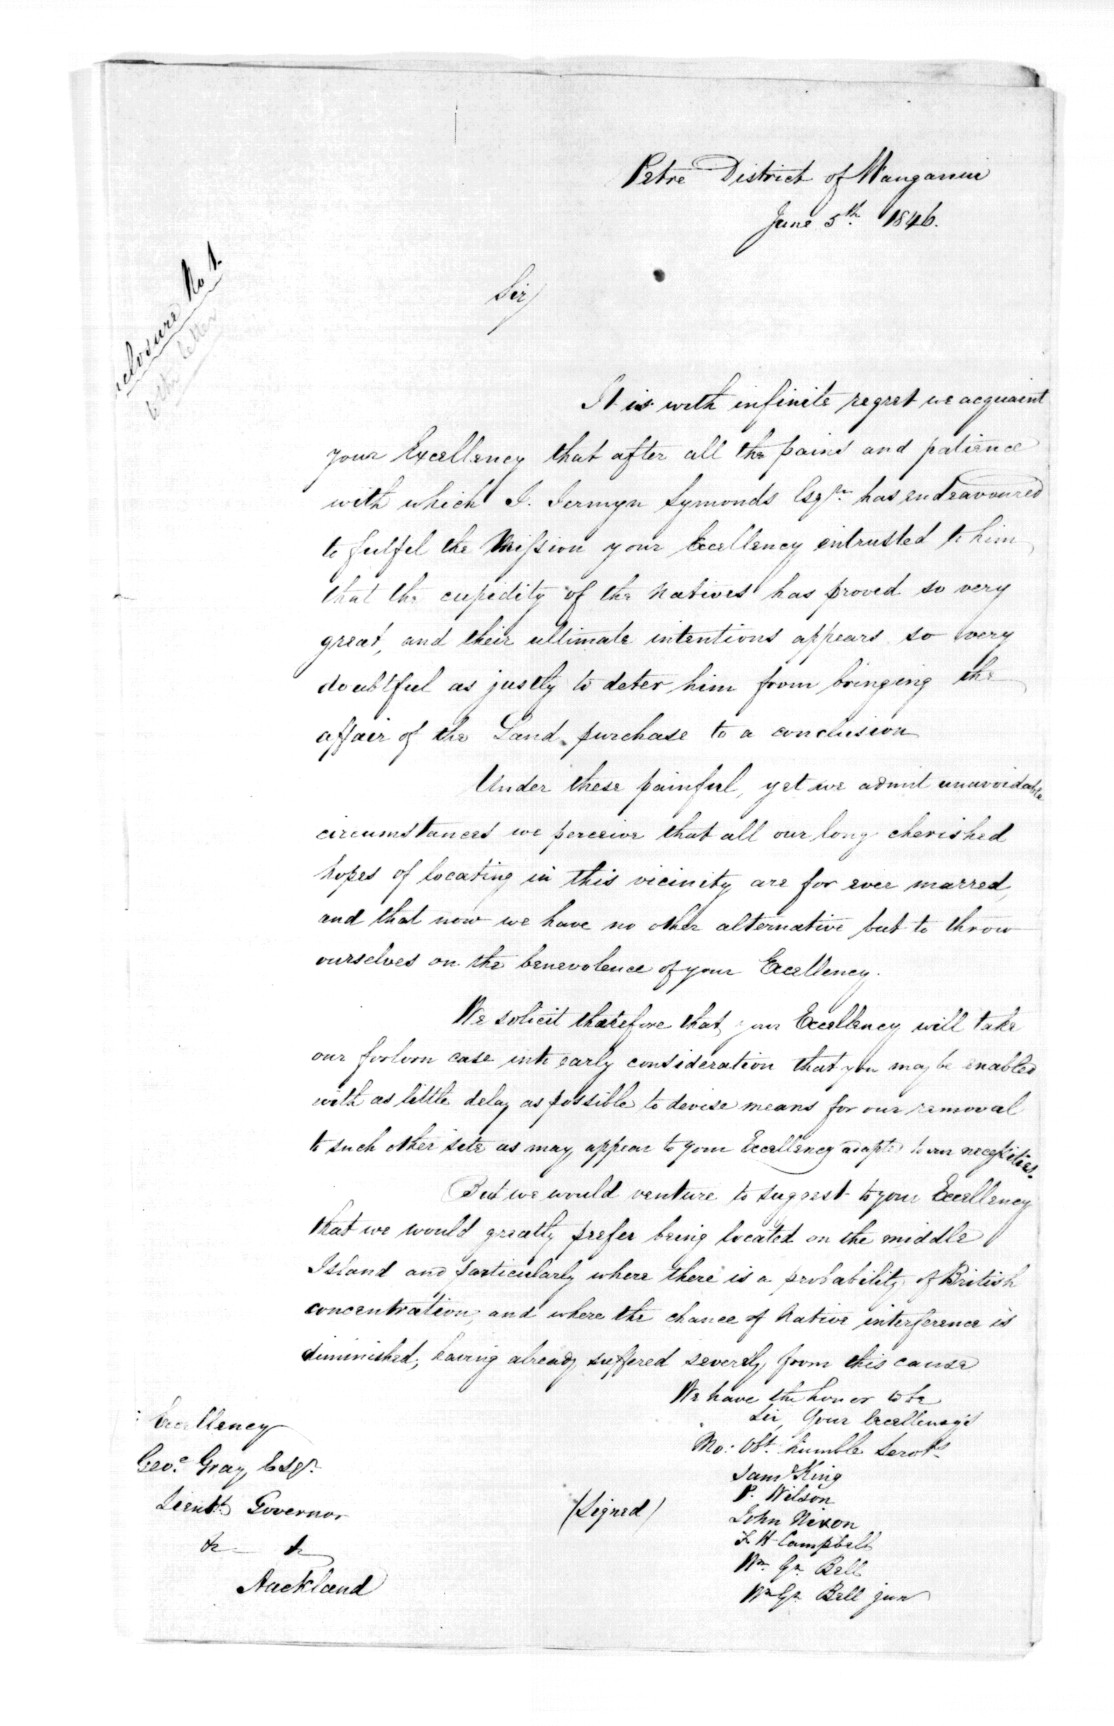 Petre District of Wanganui
June 5th 1846.
closure No 1.
6th letter
Sir/
It is with infinite regret we acquaint
your Excellency that after all the pains and patience
with which J. Jermyn Symonds Esqre has endeavoured
to fulfil the Mission your Excellency entrusted to him,
that the cupidity of the Natives has proved so very
great, and their ultimate intentions appears so very
doubtful as justly to deter him from bringing the
affair of the Land purchase to a conclusion
Under these painful, yet we admit unavoidable
circumstances we perceive that all our long cherished
hopes of locating in this vicinity are for ever marred,
and that now we have no other alternative but to throw
ourselves on the benevolence of your Excellency.
We solicit therefore that your Excellency will take
our forlorn case into early consideration that you may be enabled
with as little delay as possible to devise means for our removal
to such other site as may appear to your Excellency adapted to our necessities.
But we would venture to suggest to your Excellency
that we would greatly prefer being located on the middle
Island and particularly where there is a probability of British
concentration, and where the chance of Native interference is
diminished, having already suffered severely from this cause
We have the honor to be
Sir, Your Excellency's
Mo: Obt. humble Servts
(Signed)
Saml King
P. Wilson
John Nixon
F H Campbell
Wm Gn Bell
Wm Gn Bell jun
Excellency
Geo. Gray Esqr.
Lieut. Governor
&c &c
Auckland